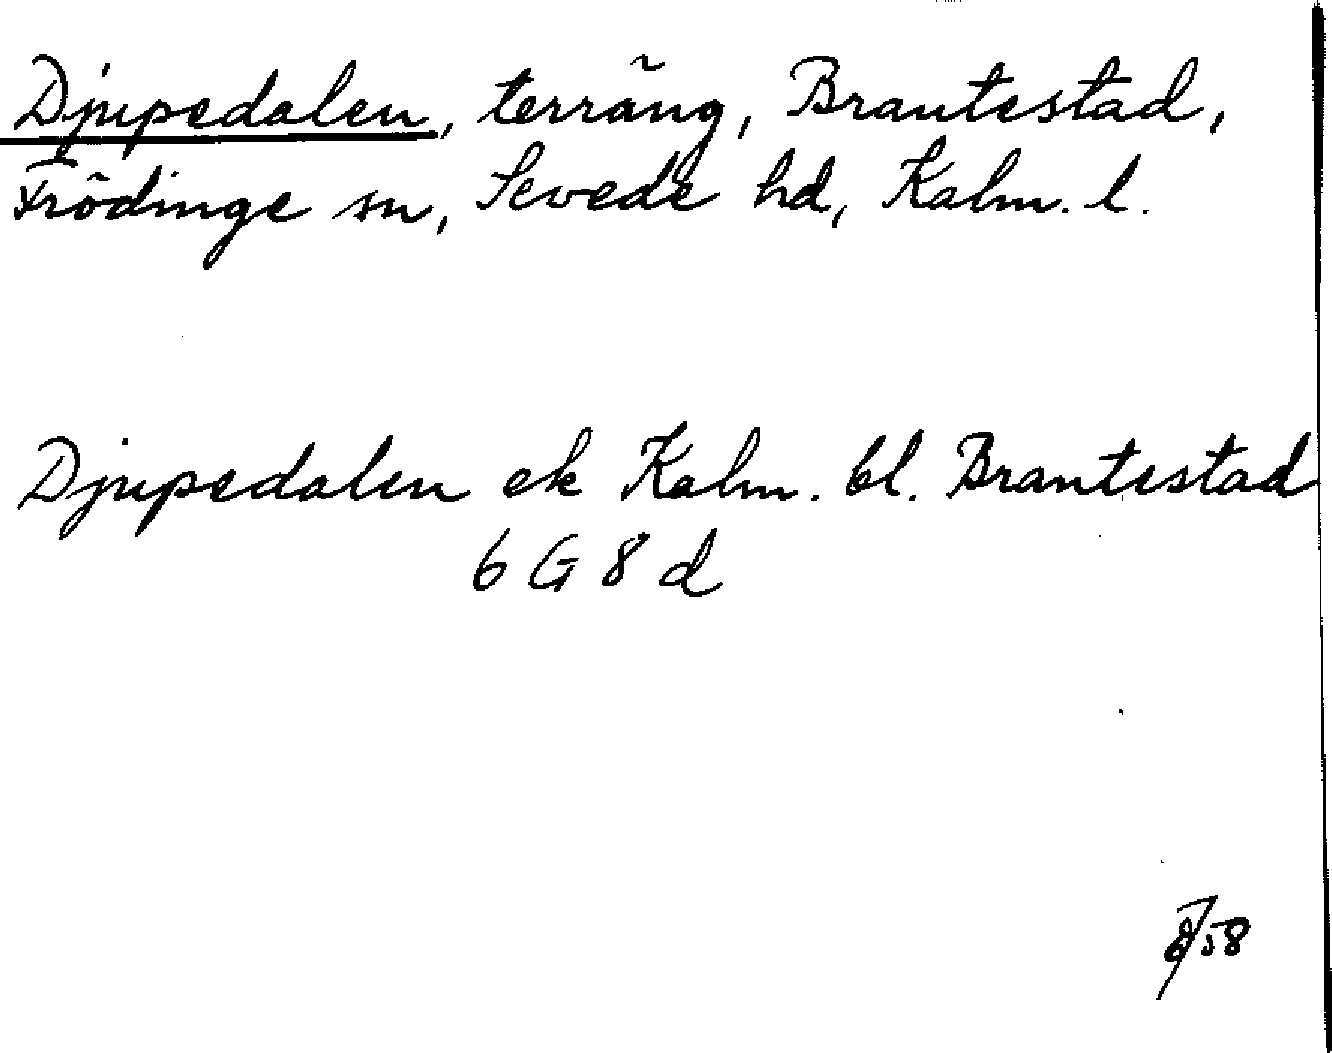 Djupedalen, terräng, Brantestad,
Frödinge sn, Sevede hd, Kalm. l.
Djupedalen ek Kalm. bl. Brantestad
6 G 8 d